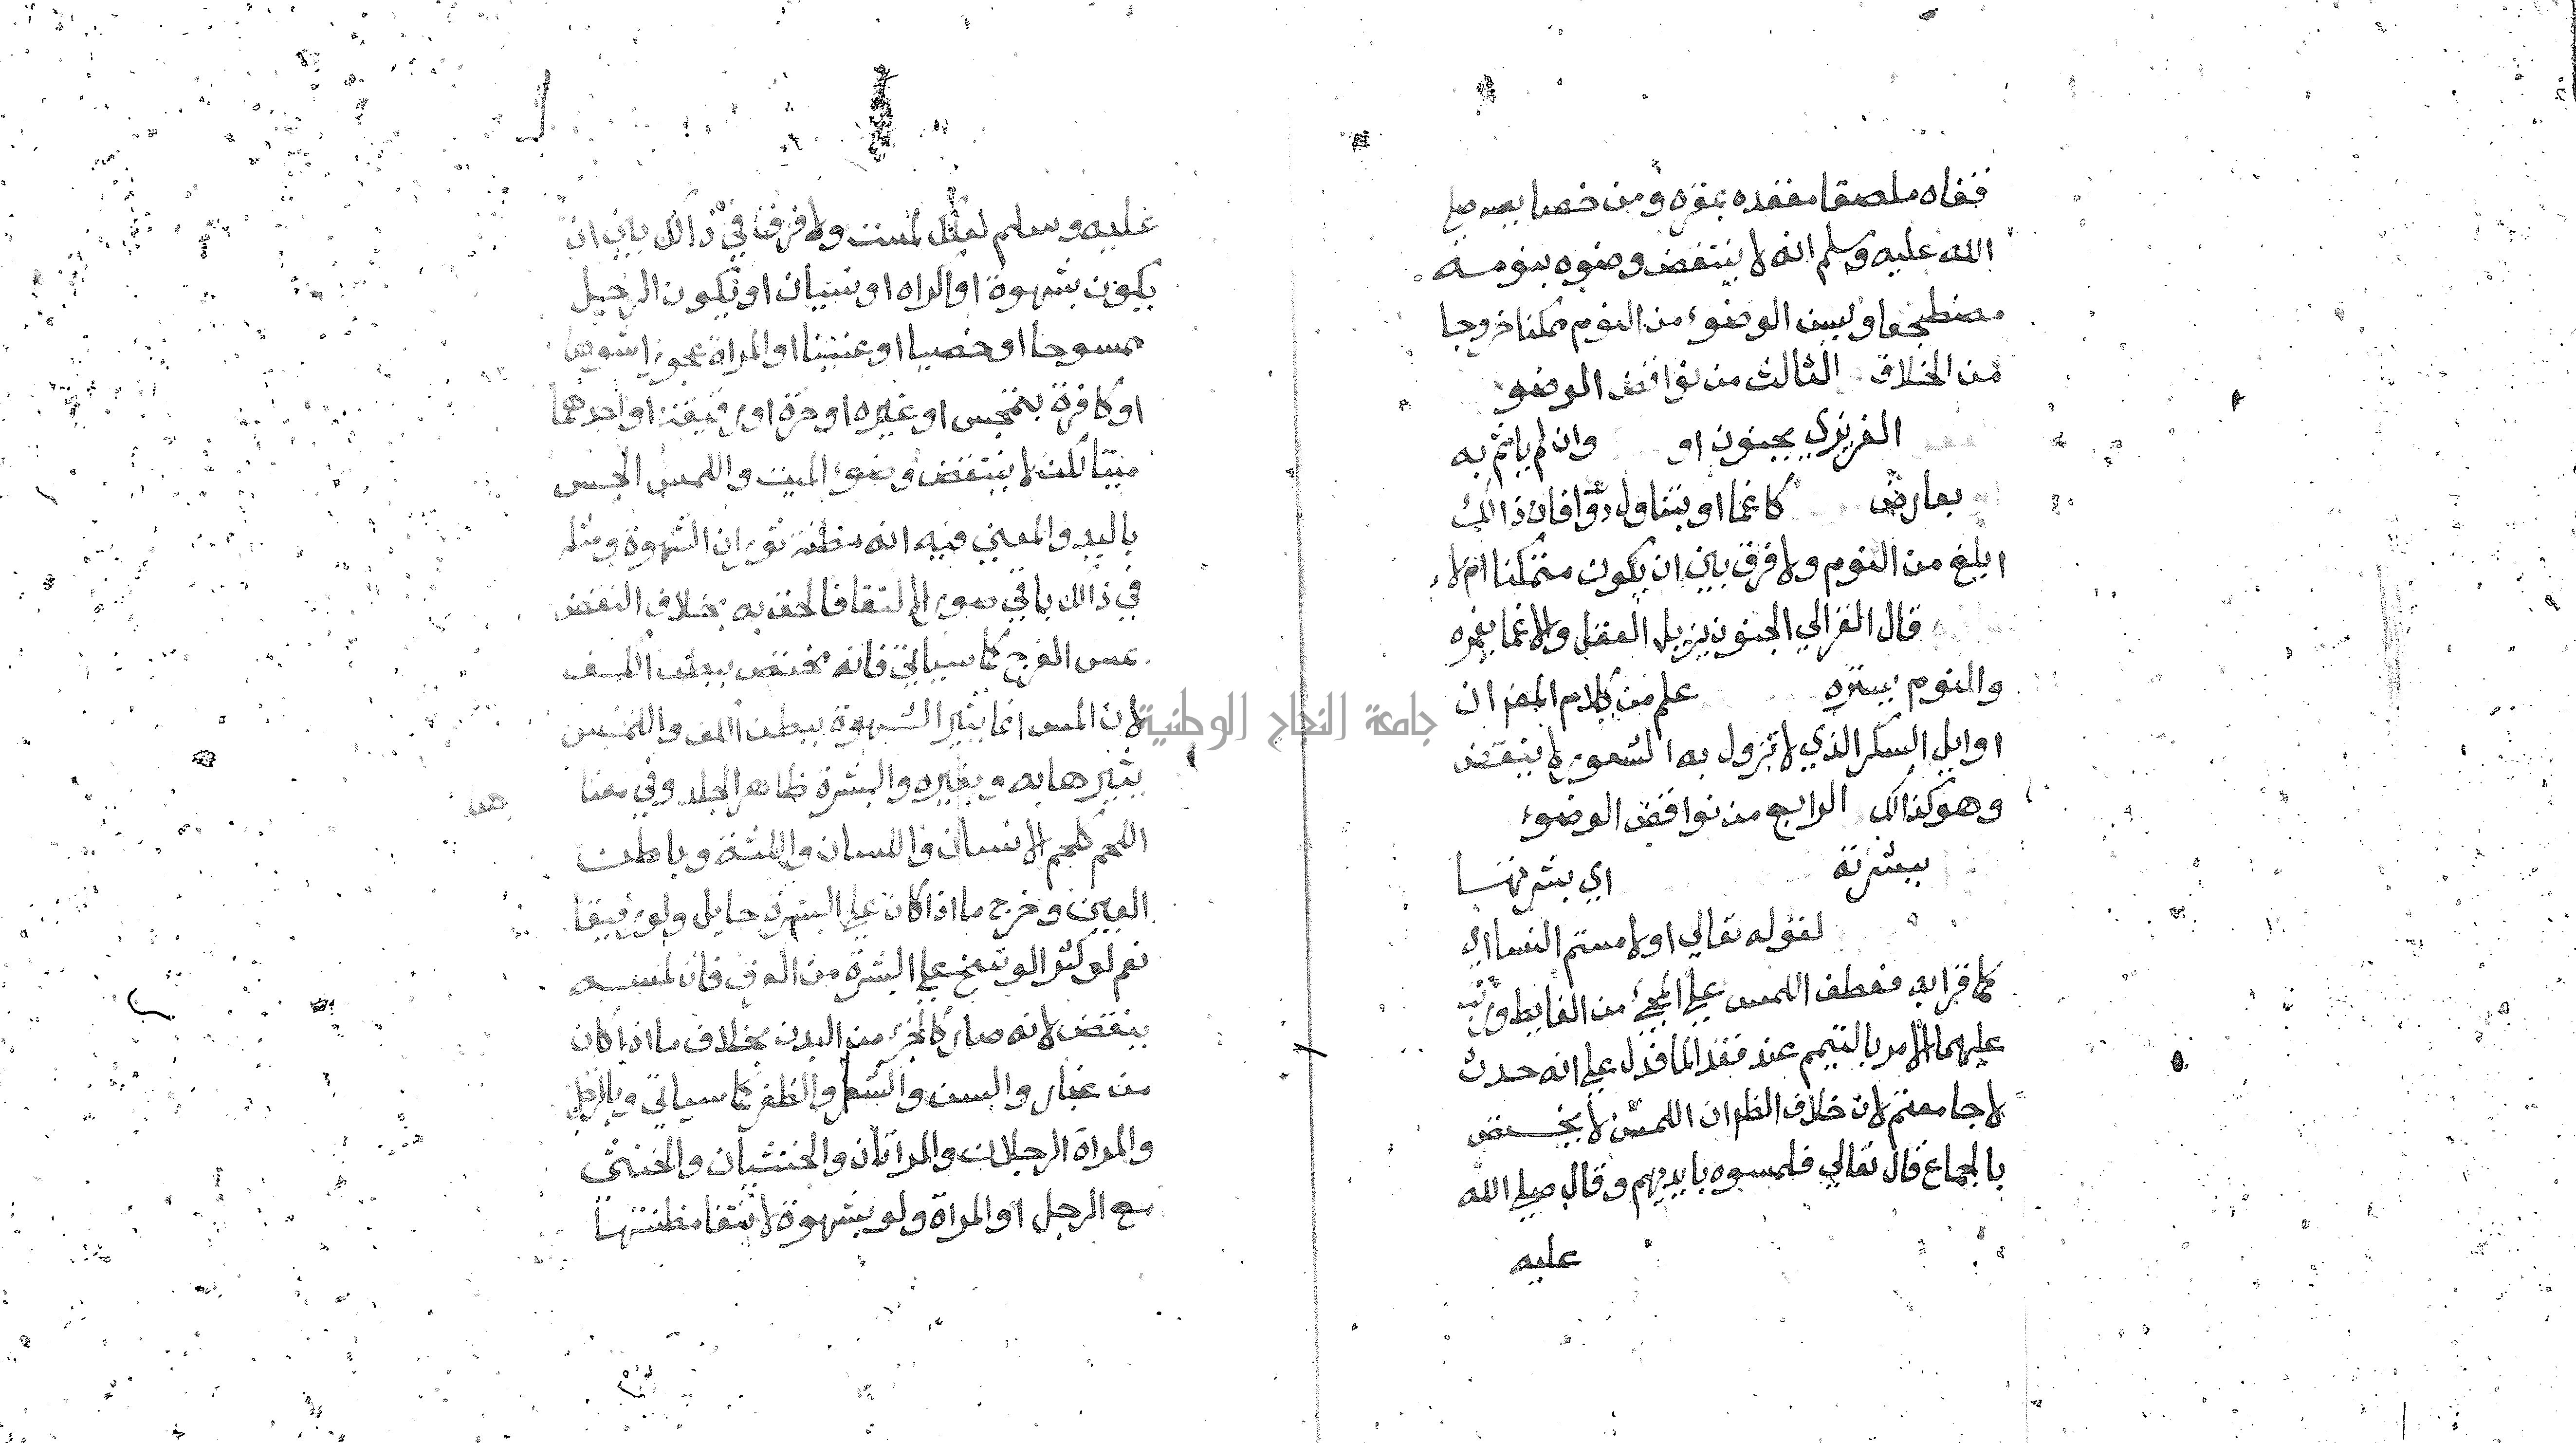 قفاه ملصقا مقعده بمقره ومن خصايصه صلى
الله عليه وسلم انه لا ينتقض وضوه بنومه
مضطجعا ويسن الوضوء من النوم ممكنا خروجا
من الخلاف الثالث من نواقض الوضو
الغريزي بجنون او وان لم ياثم به
بعارض كاغما او بتناول دوا فان ذالك
ابلغ من النوم ولا فرق بين ان يكون متمكنا ام لا
قال الغزالي الجنون يزيل العقل والاغما يغمره
والنوم يستره علم من كلام المص ان
اوايل السكر الذي لا تزول به الشعور لا ينقض
وهو كذالك الرابع من نواقض الوضوء
ببشرته اي بشرتها
لقوله تعالي او لامستم النسا اي
كما قرا به فعطف اللمس علي المجيء من الغايط ورتب
عليهما الامر بالتيمم عند فقد الما فدل علي انه حدث
لا جامعتم لانه خلاف الظ ان اللمس لا يختص
بالجماع قال تعالي فلمسوه بايديهم وقال صلي الله
عليه
عليه وسلم لعلك لمست ولا فرق في ذالك بين ان
يكون بشهوة او اكراه او نسيان او يكون الرجل
ممسوحا او خصيا او عنينا او المراة عجوزا شوها
او كافرة بتمجس او غيره او حرة او رقيقة او احدهما
ميتا لكن لا ينتقض وضوء الميت واللمس الجس
باليد والمعني فيه انه مظنة ثوران الشهوة ومثله
في ذالك باقي صور الالتقا فالحق به بخلاف النقض
بمس الفرج كما سياتي فانه يختص ببطن الكف
لان المس انما يثير الشهوة ببطن الكف واللمس
يثيرها به وبغيره والبشرة ظاهر الجلد وفي معنا
ها
اللحم كلحم الانسان واللسان واللثة وباطن
العين وخرج ما اذا كان علي البشرة حايل ولو رقيقا
نعم لو كثر الوسخ علي البشرة من العرق فان لمسه
ينقض لانه صار كالجزء من البدن بخلاف ما اذا كان
من غبار والسن والشعر والظفر كما سياتي وبالرجل
والمراة الرجلان والمراتان والخنثيان والخنثي
مع الرجل او المراة ولو بشهوة لانتفا مظنتها
جامعة النجاح الوطنية